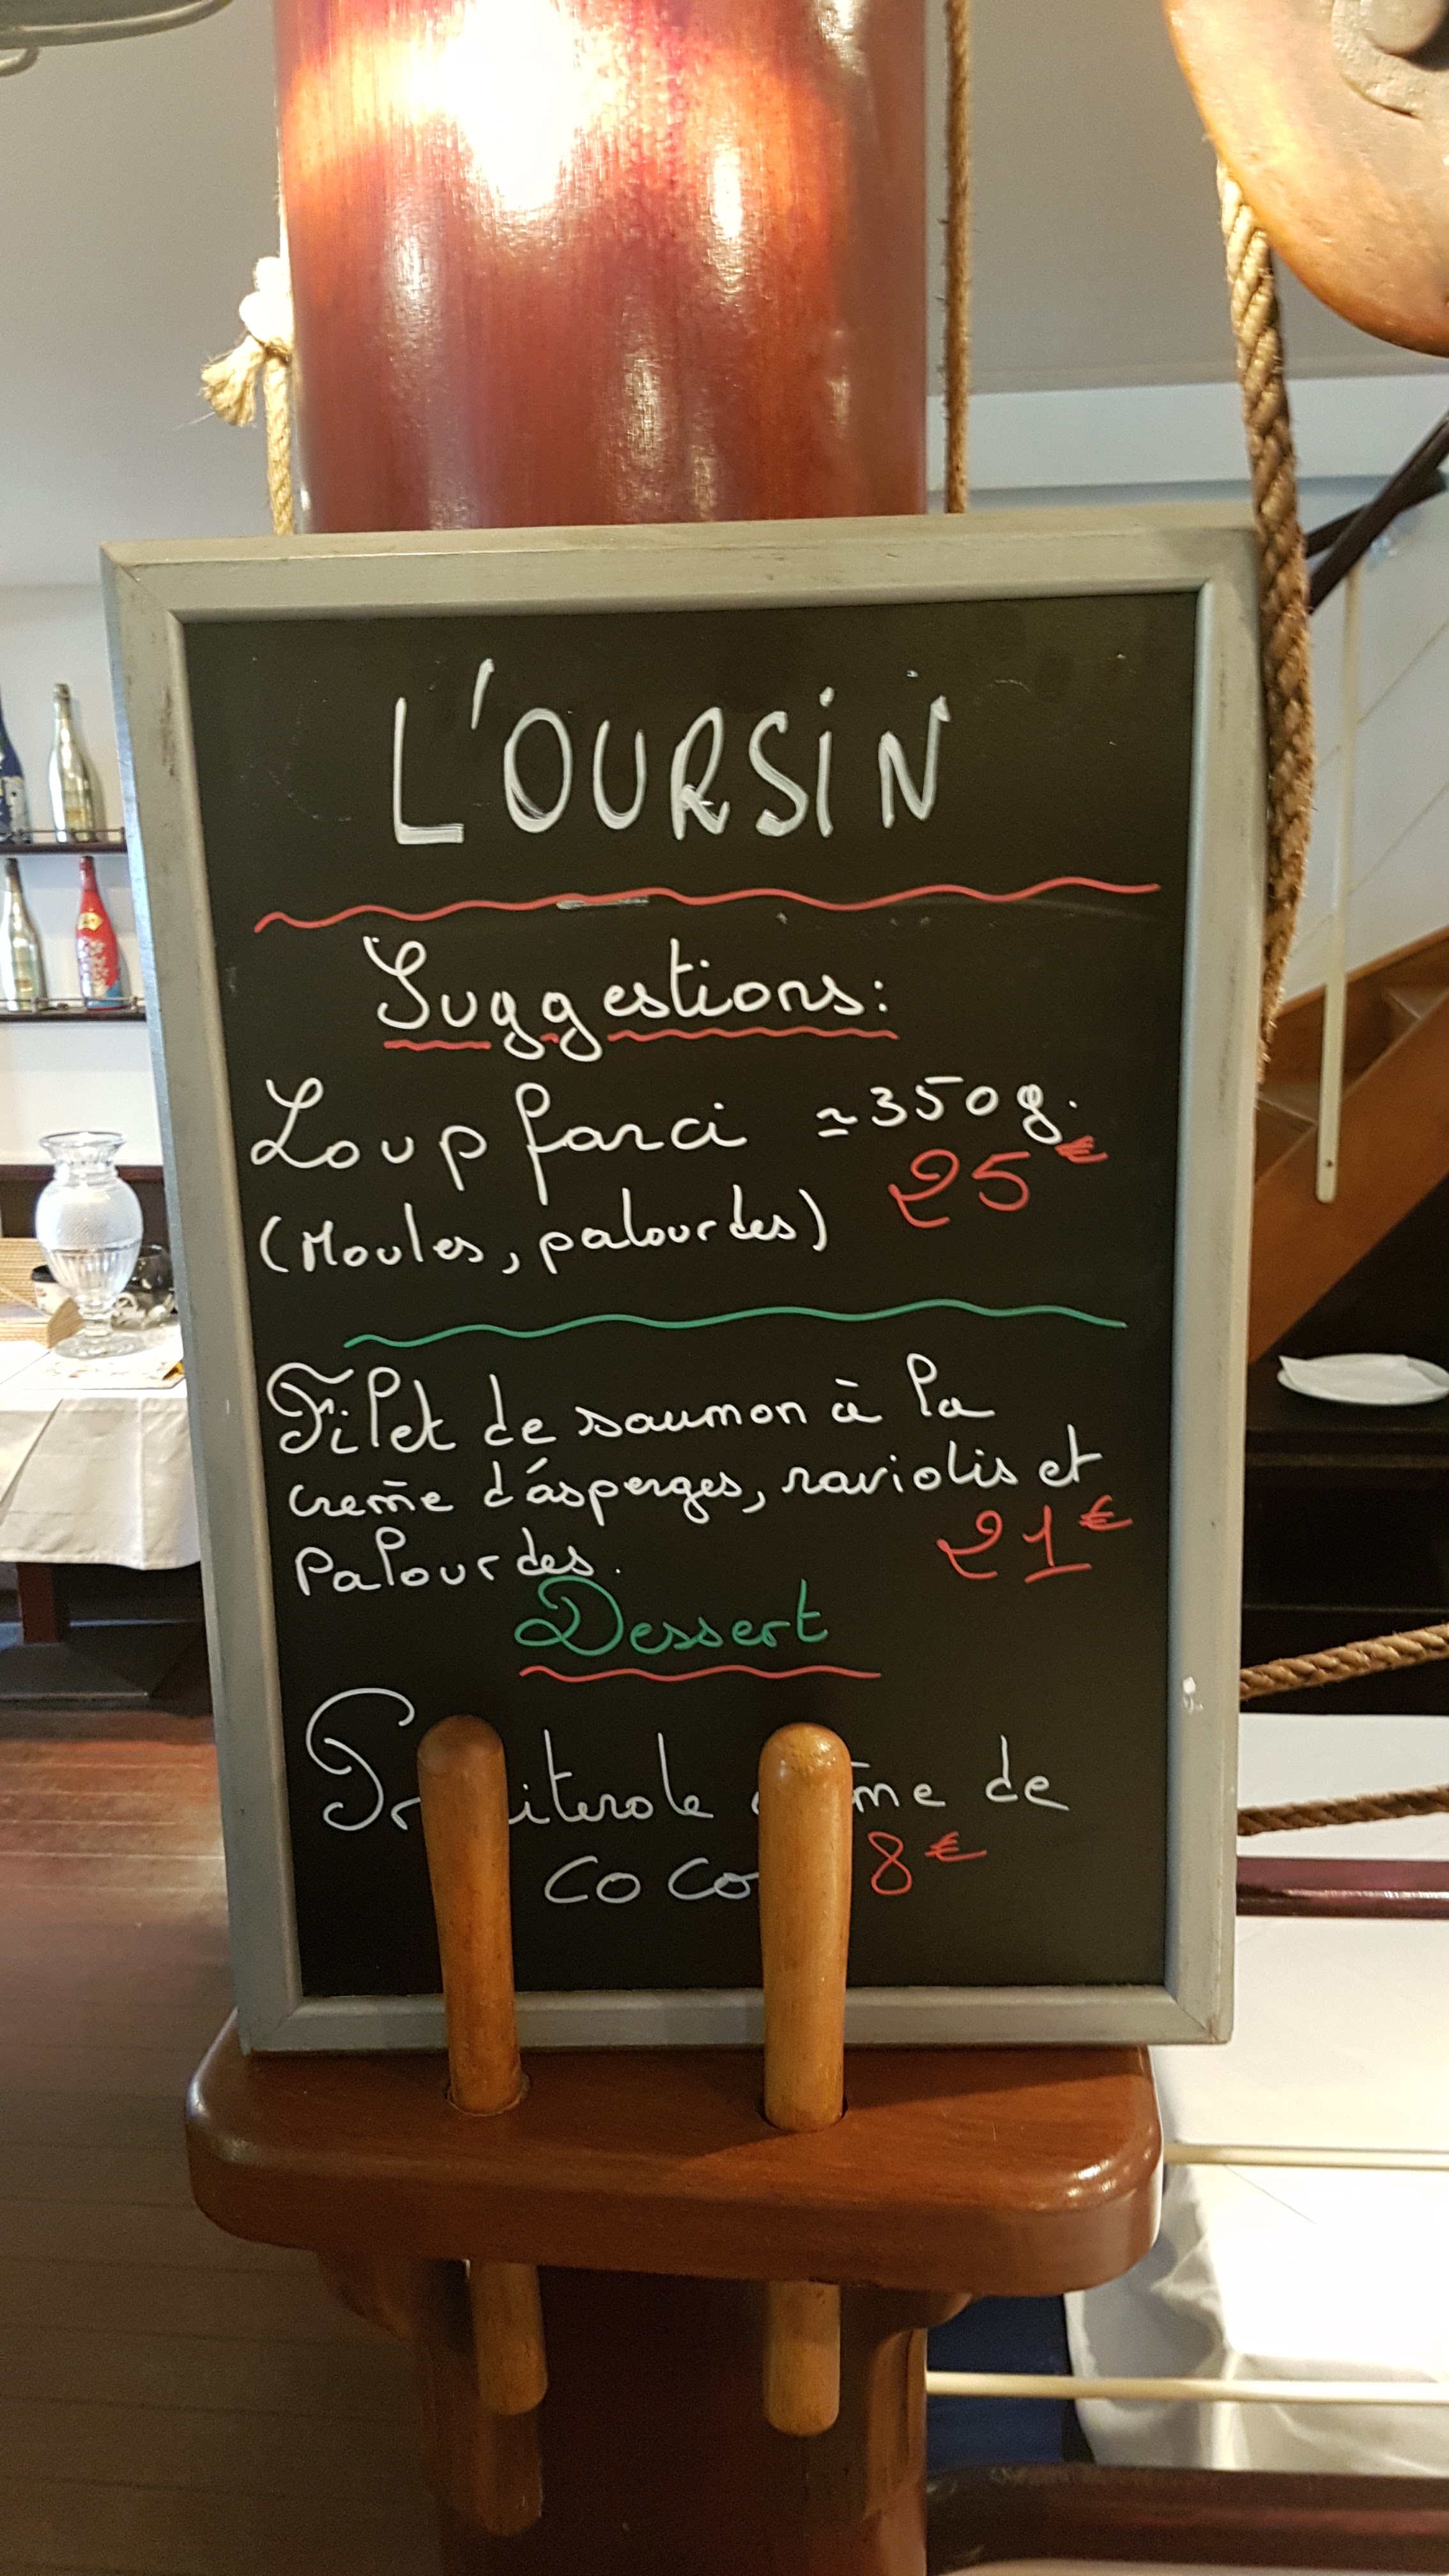 L'OURSIN
Suggestions:
Loup farci ≃350g.
25€
(Moules, palourdes)
Filet de saumon à la
crème d'asperges, raviolis et
Palourdes. 21€
Dessert
de
coco 8€